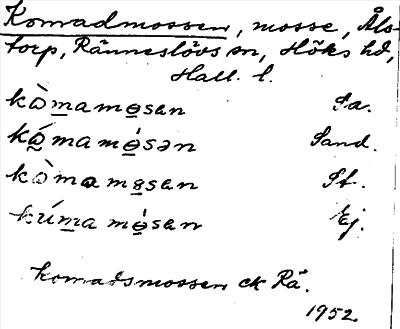 Komradmossen, mosse, Åls-
torp, Ränneslövs sn, Höks hd,
Hall. l.
kòmamosen Sa.
kámamósən Sand.
kòmamosen St.
kúmamósen Ej.
komadsmossen ek Rä.
1952